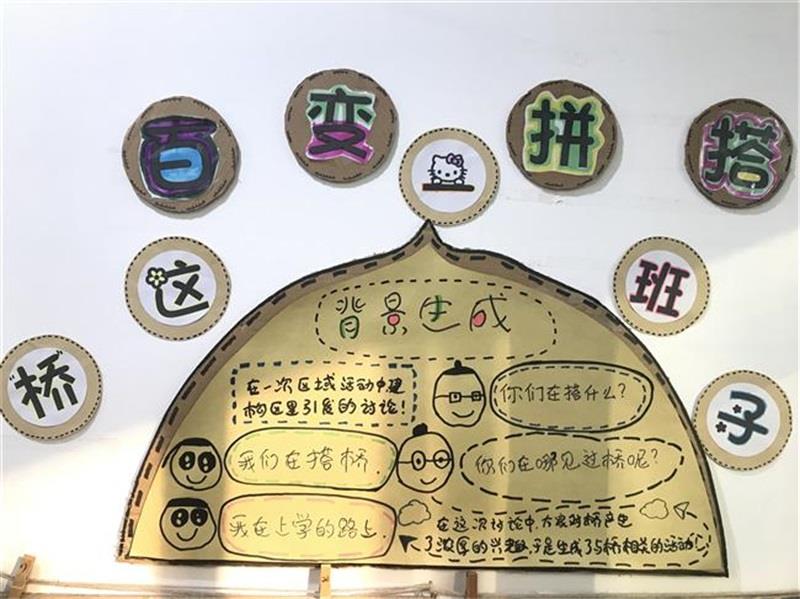 百变拼搭
“桥”这班子
背景生成
在一次区域活动中建
构区里引发的讨论！
你们在搭什么？
我们在搭桥.
你们在哪见过桥呢？
我在上学的路上.
在这次讨论中,大家对桥产生
了浓厚的兴趣,于是生成了与桥相关的活动！